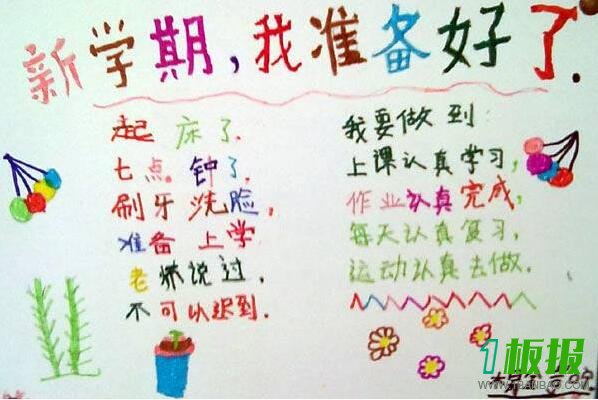 新学期,我准备好了.
起床了.
七点.钟了.
刷牙洗脸,
准备上学
老师说过.
不可以迟到.
我要做到:
上课认真学习,
作业认真完成,
每天认真复习,
运动认真去做.
1板报
WWW.1BANBAO.COM